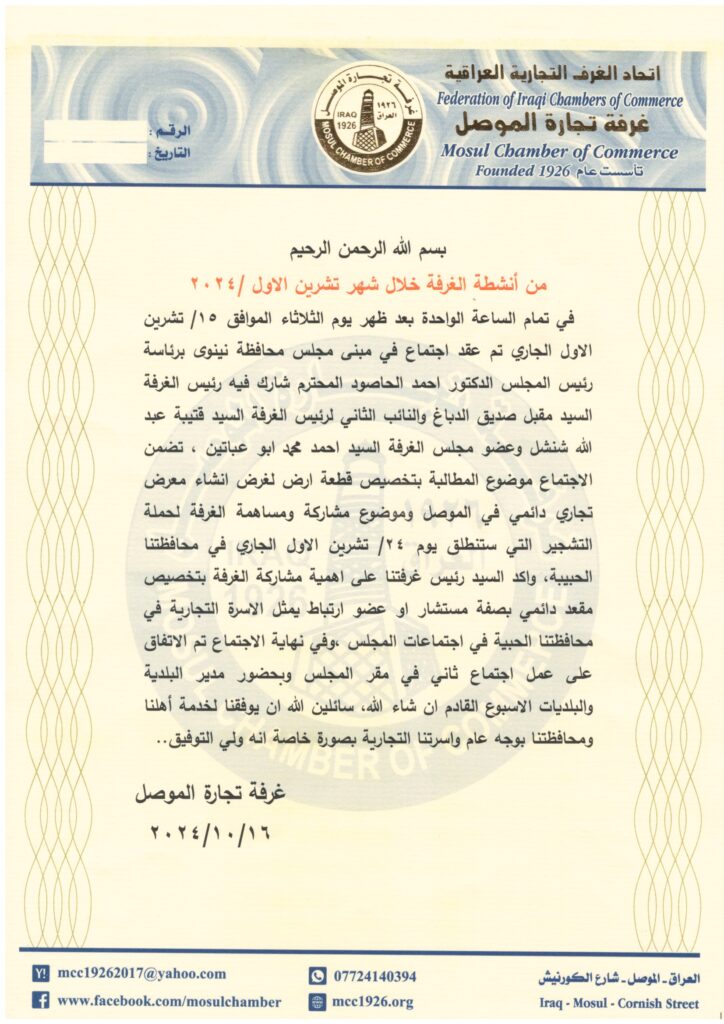 اتحاد الغرف التجارية العراقية
Federation of Iraqi Chambers of Commerce
غرفة تجارة الموصل
Mosul Chamber of Commerce
Founded 1926 تأسست عام
غرفة تجارة الموصل
IRAQ 1926
١٩٢٦ العراق
MOSUL CHAMBER OF COMMERCE
الرقم :
التاريخ :
بسم الله الرحمن الرحيم
من أنشطة الغرفة خلال شهر تشرين الاول /٢٠٢٤
في تمام الساعة الواحدة بعد ظهر يوم الثلاثاء الموافق ١٥/ تشرين
الاول الجاري تم عقد اجتماع في مبنى مجلس محافظة نينوى برئاسة
رئيس المجلس الدكتور احمد الحاصود المحترم شارك فيه رئيس الغرفة
السيد مقبل صديق الدباغ والنائب الثاني لرئيس الغرفة السيد قتيبة عبد
الله شنشل وعضو مجلس الغرفة السيد احمد محمد ابو عباتين ، تضمن
الاجتماع موضوع المطالبة بتخصيص قطعة ارض لغرض انشاء معرض
تجاري دائمي في الموصل وموضوع مشاركة ومساهمة الغرفة لحملة
التشجير التي ستنطلق يوم ٢٤/ تشرين الاول الجاري في محافظتنا
الحبيبة، واكد السيد رئيس غرفتنا على اهمية مشاركة الغرفة بتخصيص
مقعد دائمي بصفة مستشار او عضو ارتباط يمثل الاسرة التجارية في
محافظتنا الحبية في اجتماعات المجلس ،وفي نهاية الاجتماع تم الاتفاق
على عمل اجتماع ثاني في مقر المجلس وبحضور مدير البلدية
والبلديات الاسبوع القادم ان شاء الله، سائلين الله ان يوفقنا لخدمة أهلنا
ومحافظتنا بوجه عام واسرتنا التجارية بصورة خاصة انه ولي التوفيق..
غرفة تجارة الموصل
٢٠٢٤/١٠/١٦
mcc19262017@yahoo.com
www.facebook.com/mosulchamber
07724140394
mcc1926.org
العراق - الموصل - شارع الكورنيش
Iraq - Mosul - Cornish Street